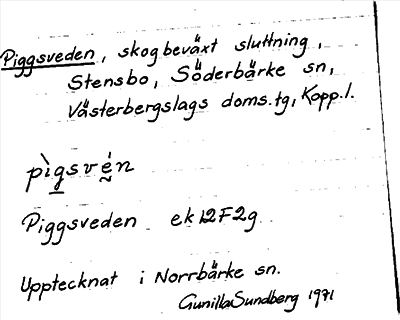 Piggsveden, skogbeväxt sluttning,
Stensbo, Söderbärke sn,
Västerbergslags doms.tg, Kopp.l.
pìgsvén
Piggsveden ek12F2g
Upptecknat i Norrbärke sn.
Gunilla Sundberg 1971